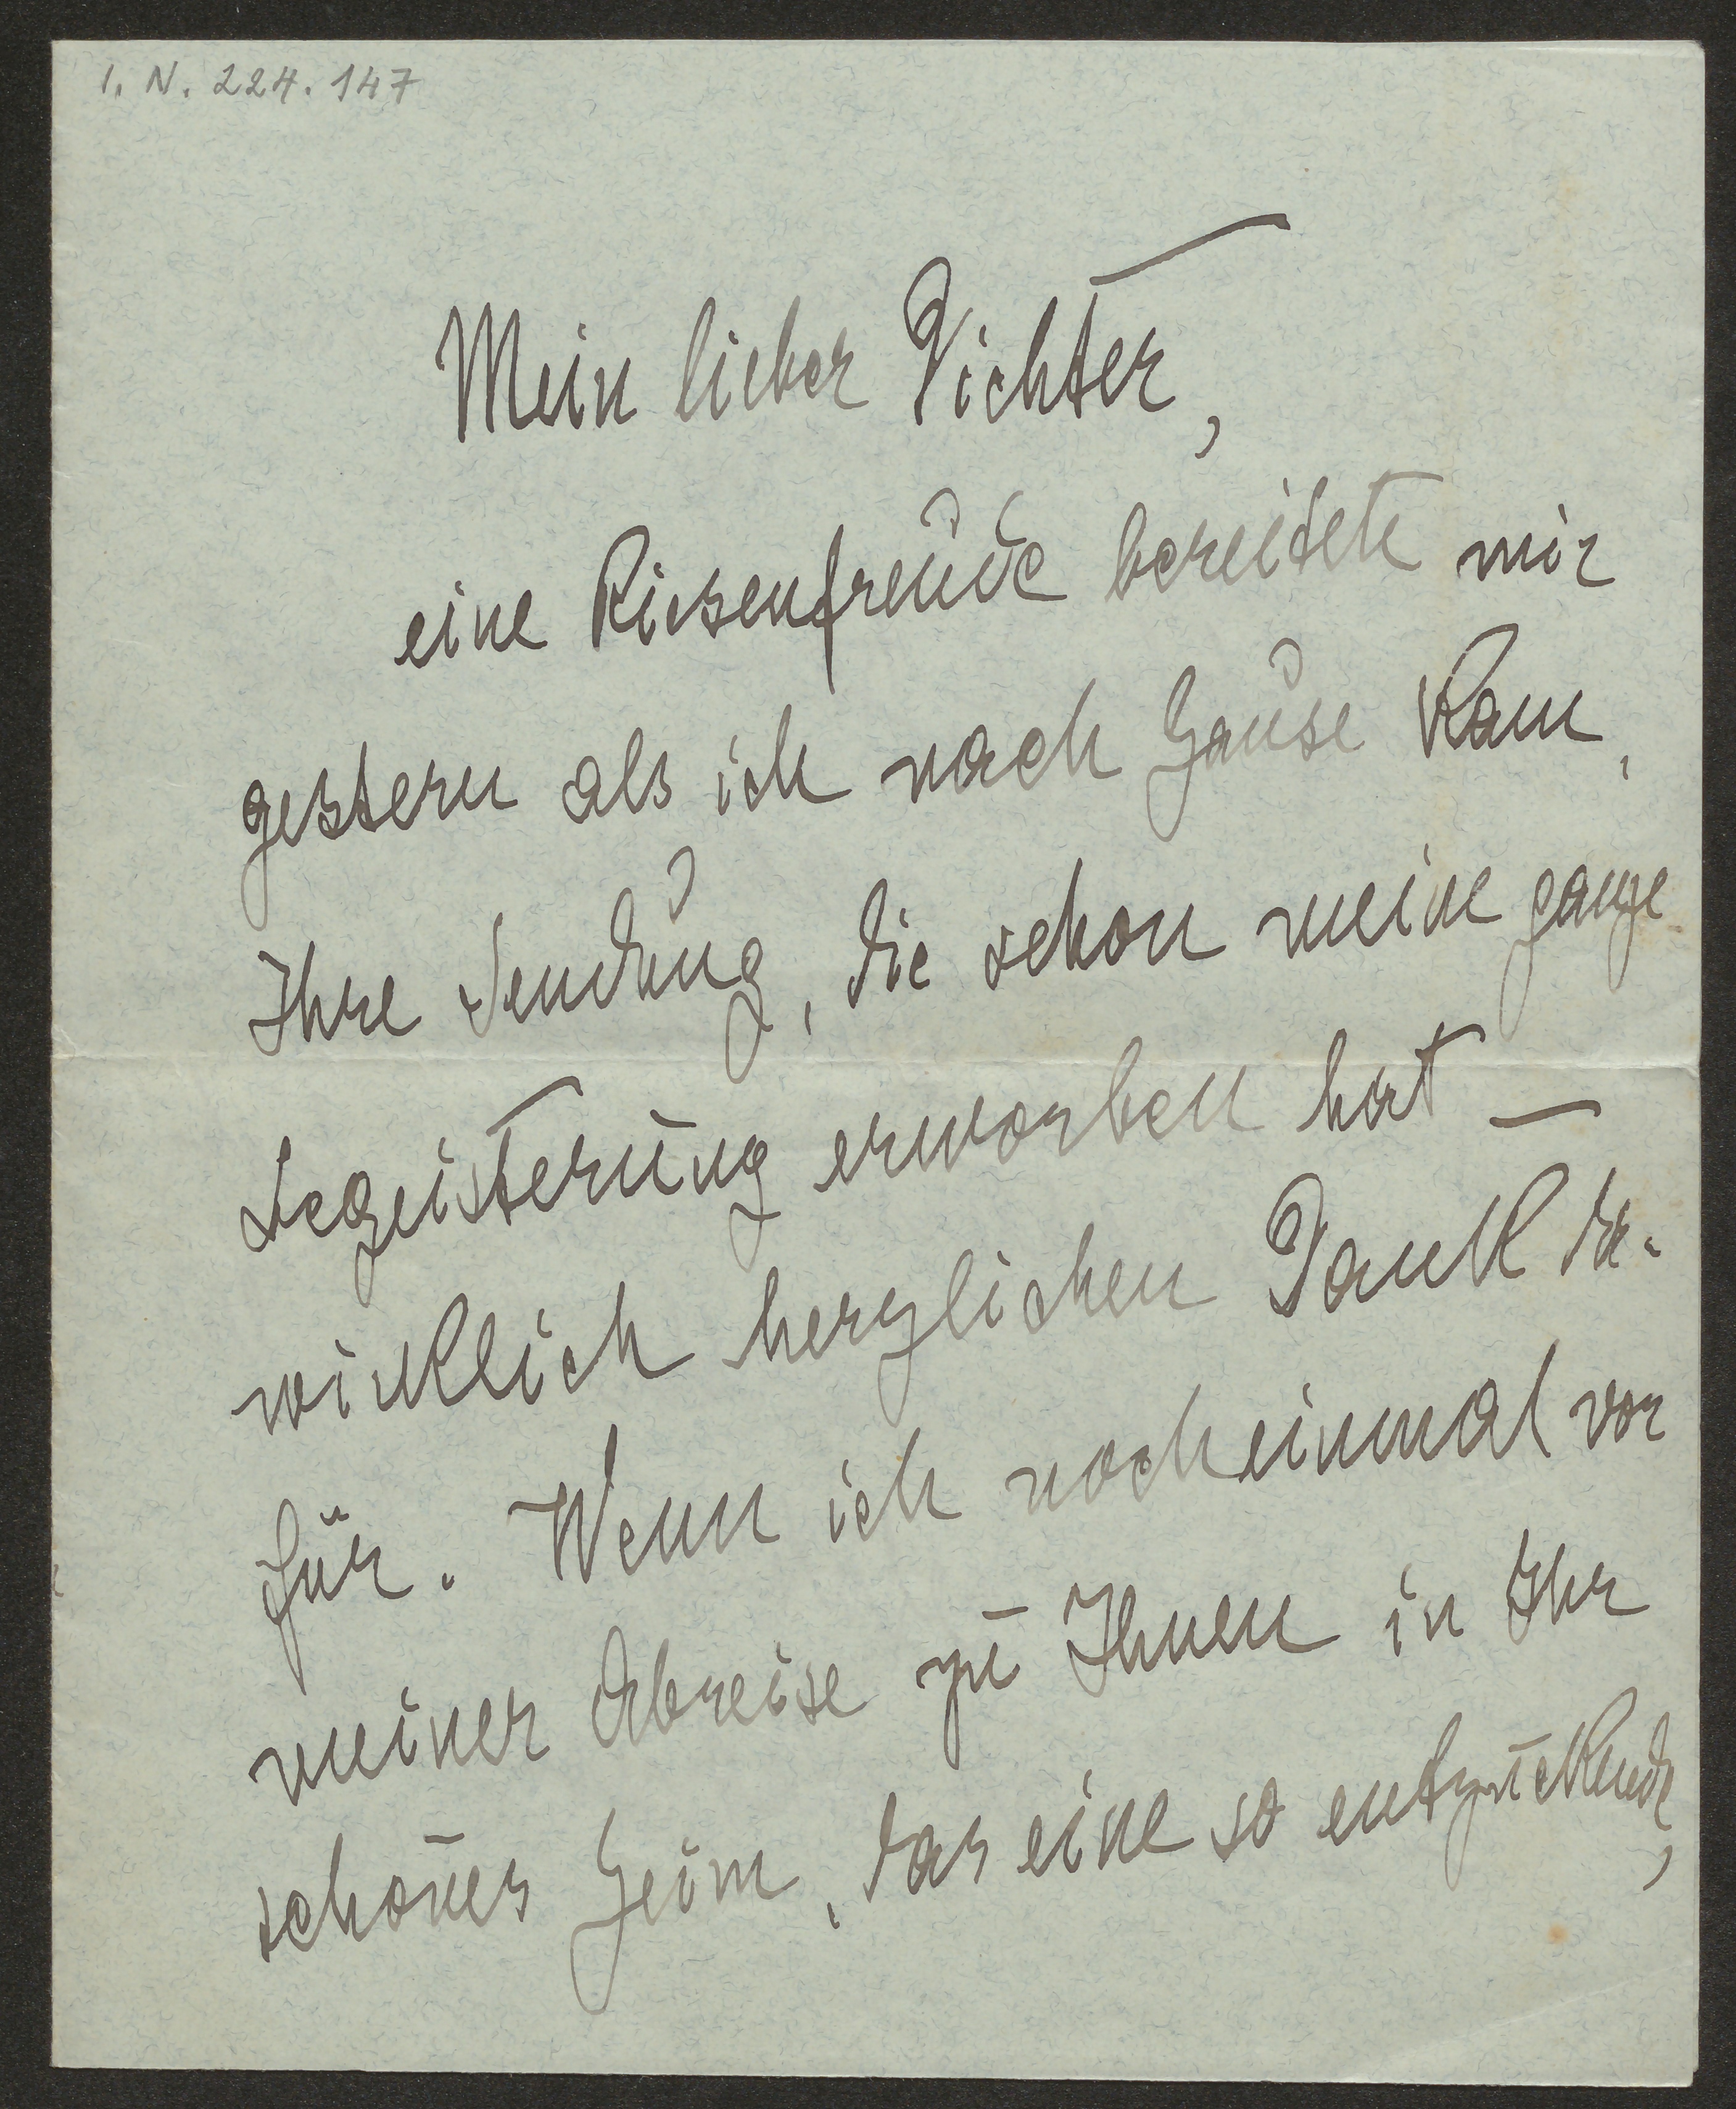 I. N. 224.147
Mein lieber Dichter,
eine Riesenfreude bereitete mir
gestern als ich nach Hause kam,
Ihre Sendung, die schon meine ganze
Begeisterung erworben hat –
wirklich herzlichen Dank da-
für. Wenn ich nocheinmal vor
meiner Abreise zu Ihnen in Ihr
schönes Heim, das eine so entzückende,